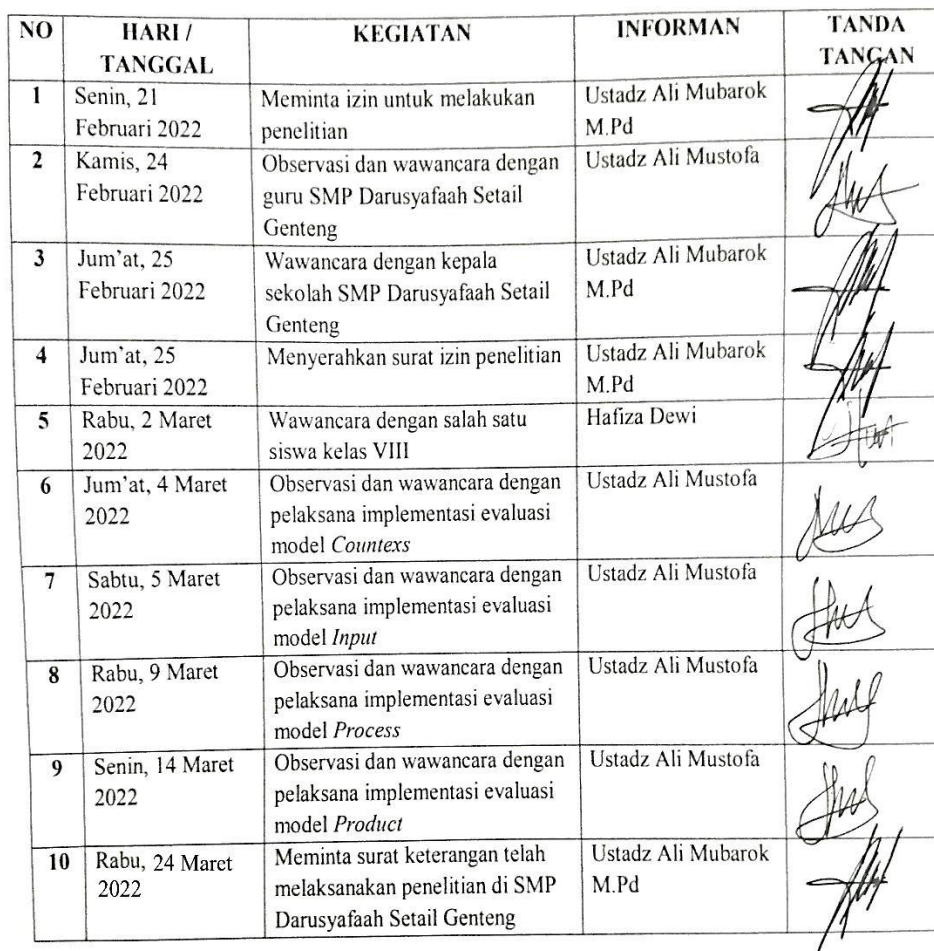 NO HARI / TANGGAL KEGIATAN INFORMAN TANDA TANGAN
1 Senin, 21 Februari 2022 Meminta izin untuk melakukan penelitian Ustadz Ali Mubarok M.Pd
2 Kamis, 24 Februari 2022 Observasi dan wawancara dengan guru SMP Darusyafaah Setail Genteng Ustadz Ali Mustofa
3 Jum'at, 25 Februari 2022 Wawancara dengan kepala sekolah SMP Darusyafaah Setail Genteng Ustadz Ali Mubarok M.Pd
4 Jum'at, 25 Februari 2022 Menyerahkan surat izin penelitian Ustadz Ali Mubarok M.Pd
5 Rabu, 2 Maret 2022 Wawancara dengan salah satu siswa kelas VIII Hafiza Dewi
6 Jum'at, 4 Maret 2022 Observasi dan wawancara dengan pelaksana implementasi evaluasi model Countexs Ustadz Ali Mustofa
7 Sabtu, 5 Maret 2022 Observasi dan wawancara dengan pelaksana implementasi evaluasi model Input Ustadz Ali Mustofa
8 Rabu, 9 Maret 2022 Observasi dan wawancara dengan pelaksana implementasi evaluasi model Process Ustadz Ali Mustofa
9 Senin, 14 Maret 2022 Observasi dan wawancara dengan pelaksana implementasi evaluasi model Product Ustadz Ali Mustofa
10 Rabu, 24 Maret 2022 Meminta surat keterangan telah melaksanakan penelitian di SMP Darusyafaah Setail Genteng Ustadz Ali Mubarok M.Pd